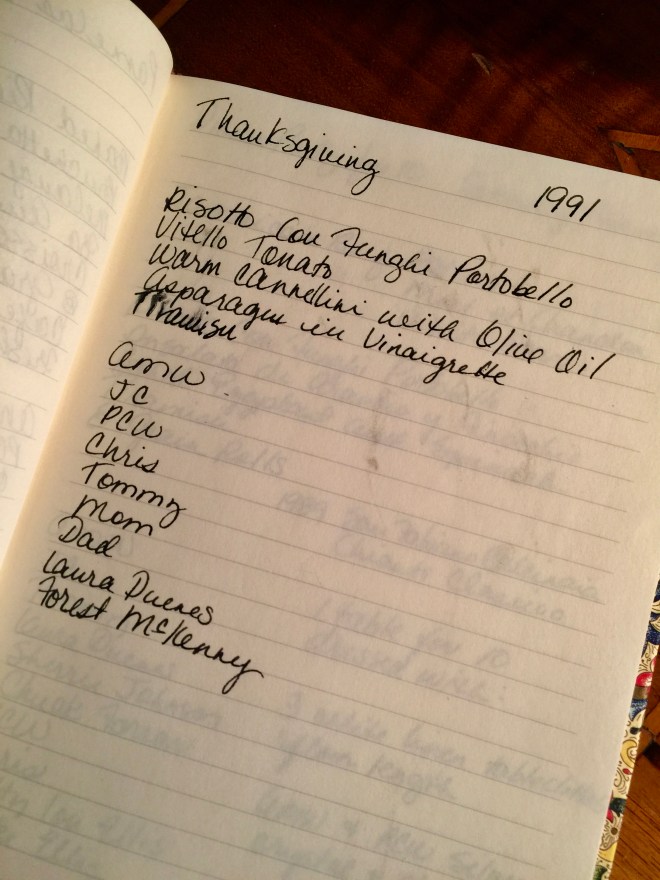 Thanksgiving
1991
Risotto Con Funghi Portobello
Vitello Tonato
Warm Cannellini with Olive Oil
Asparagus in Vinaigrette
Tiramisu
AMW
JC
PCW
Chris
Tommy
Mom
Dad
Laura Duenes
Forest McKenny